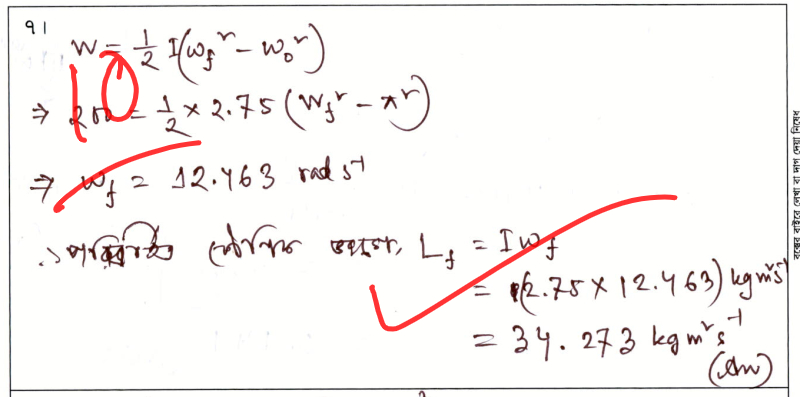 91
W = ½ I(ω_f² - ω_0²)
⇒ 200 = ½ × 2.75 (W_f² - π²)
⇒ ω_f = 12.463 rad s⁻¹
∴ কৌণিক ভরবেগ, L_f = Iω_f
= (2.75 × 12.463) kg m² s⁻¹
= 34.273 kg m² s⁻¹
(Ans)
বক্সের বাইরে লেখা বা দাগ দেয়া নিষেধ